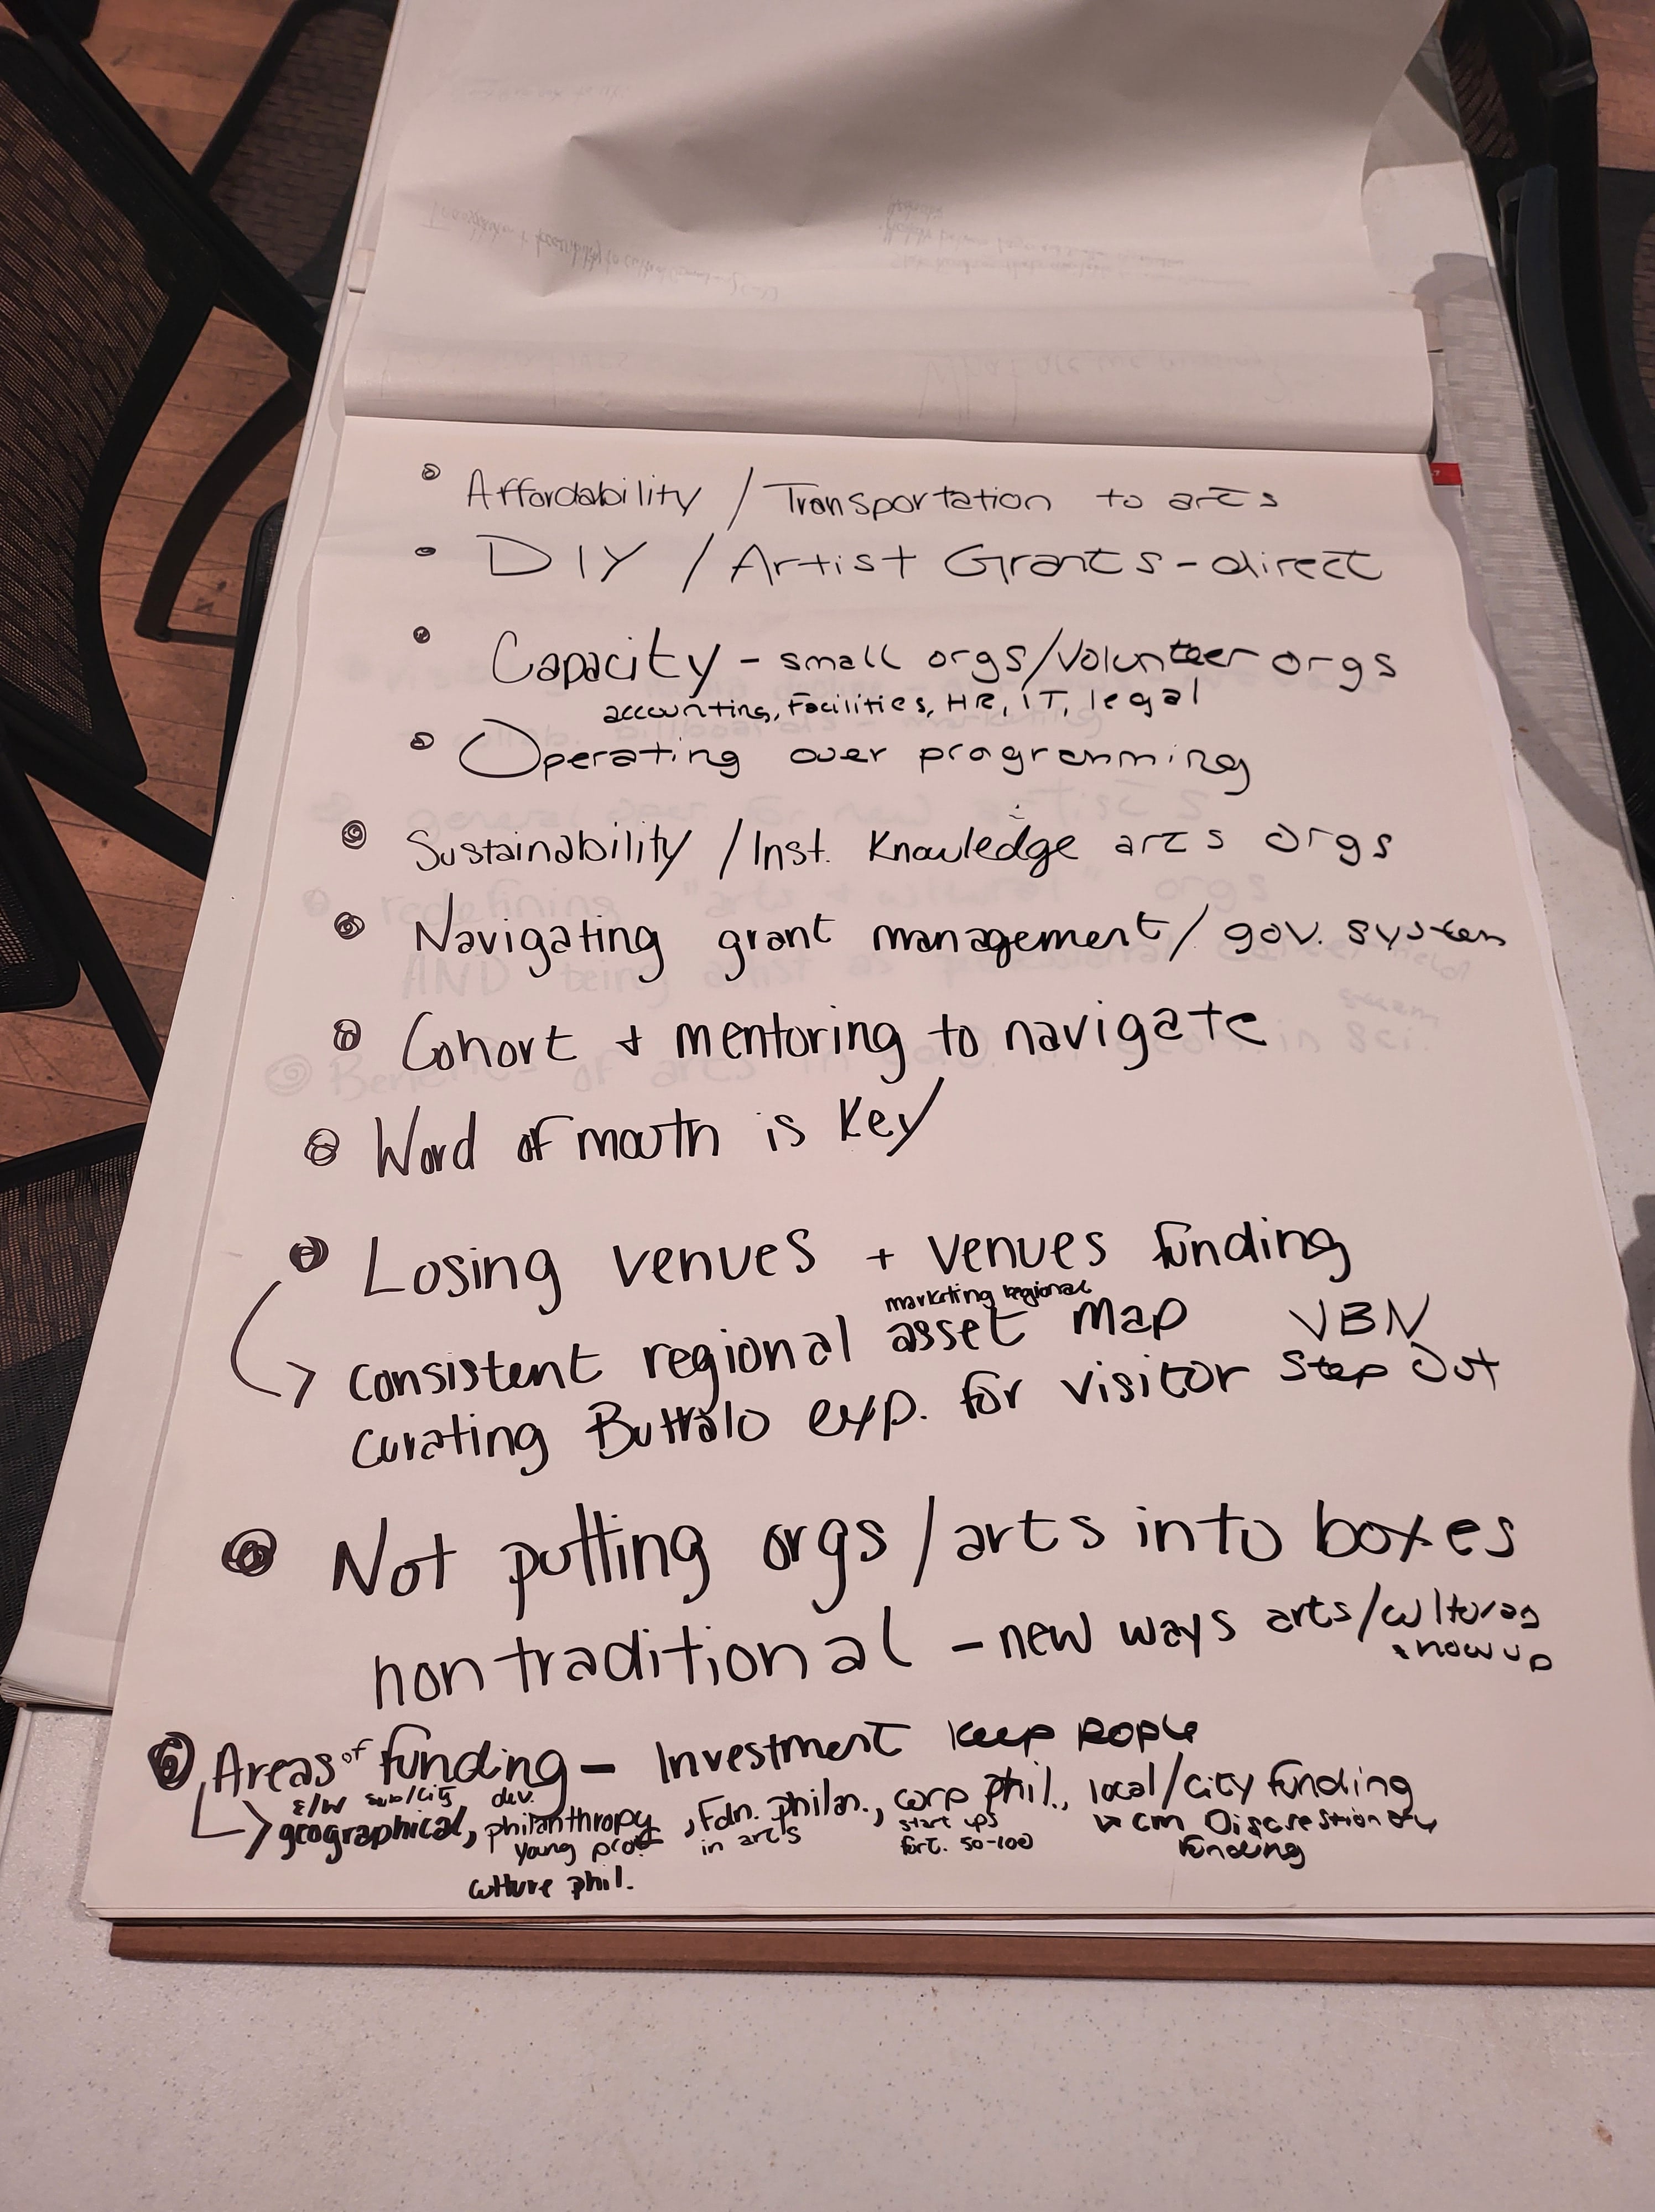 Affordability / Transportation to arts
DIY / Artist Grants - direct
Capacity - small orgs/volunteer orgs
accounting, Facilities, HR, IT, legal
Operating over programming
Sustainability / Inst. Knowledge arts orgs
Navigating grant management / gov. system
Cohort + mentoring to navigate
Word of mouth is key
Losing venues + venues funding
marketing regional
consistent regional asset map VBN
curating Buffalo exp. for visitor Step Out
Not putting orgs/arts into boxes
non traditional - new ways arts/culturas
show up
Areas of funding - Investment keep people
E/W sub/City div.
geographical, philanthropy, Fdn. philan., corp phil., local/city funding
young prof in arts start ups cm Discrestionary
fort. 50-100 funding
culture phil.